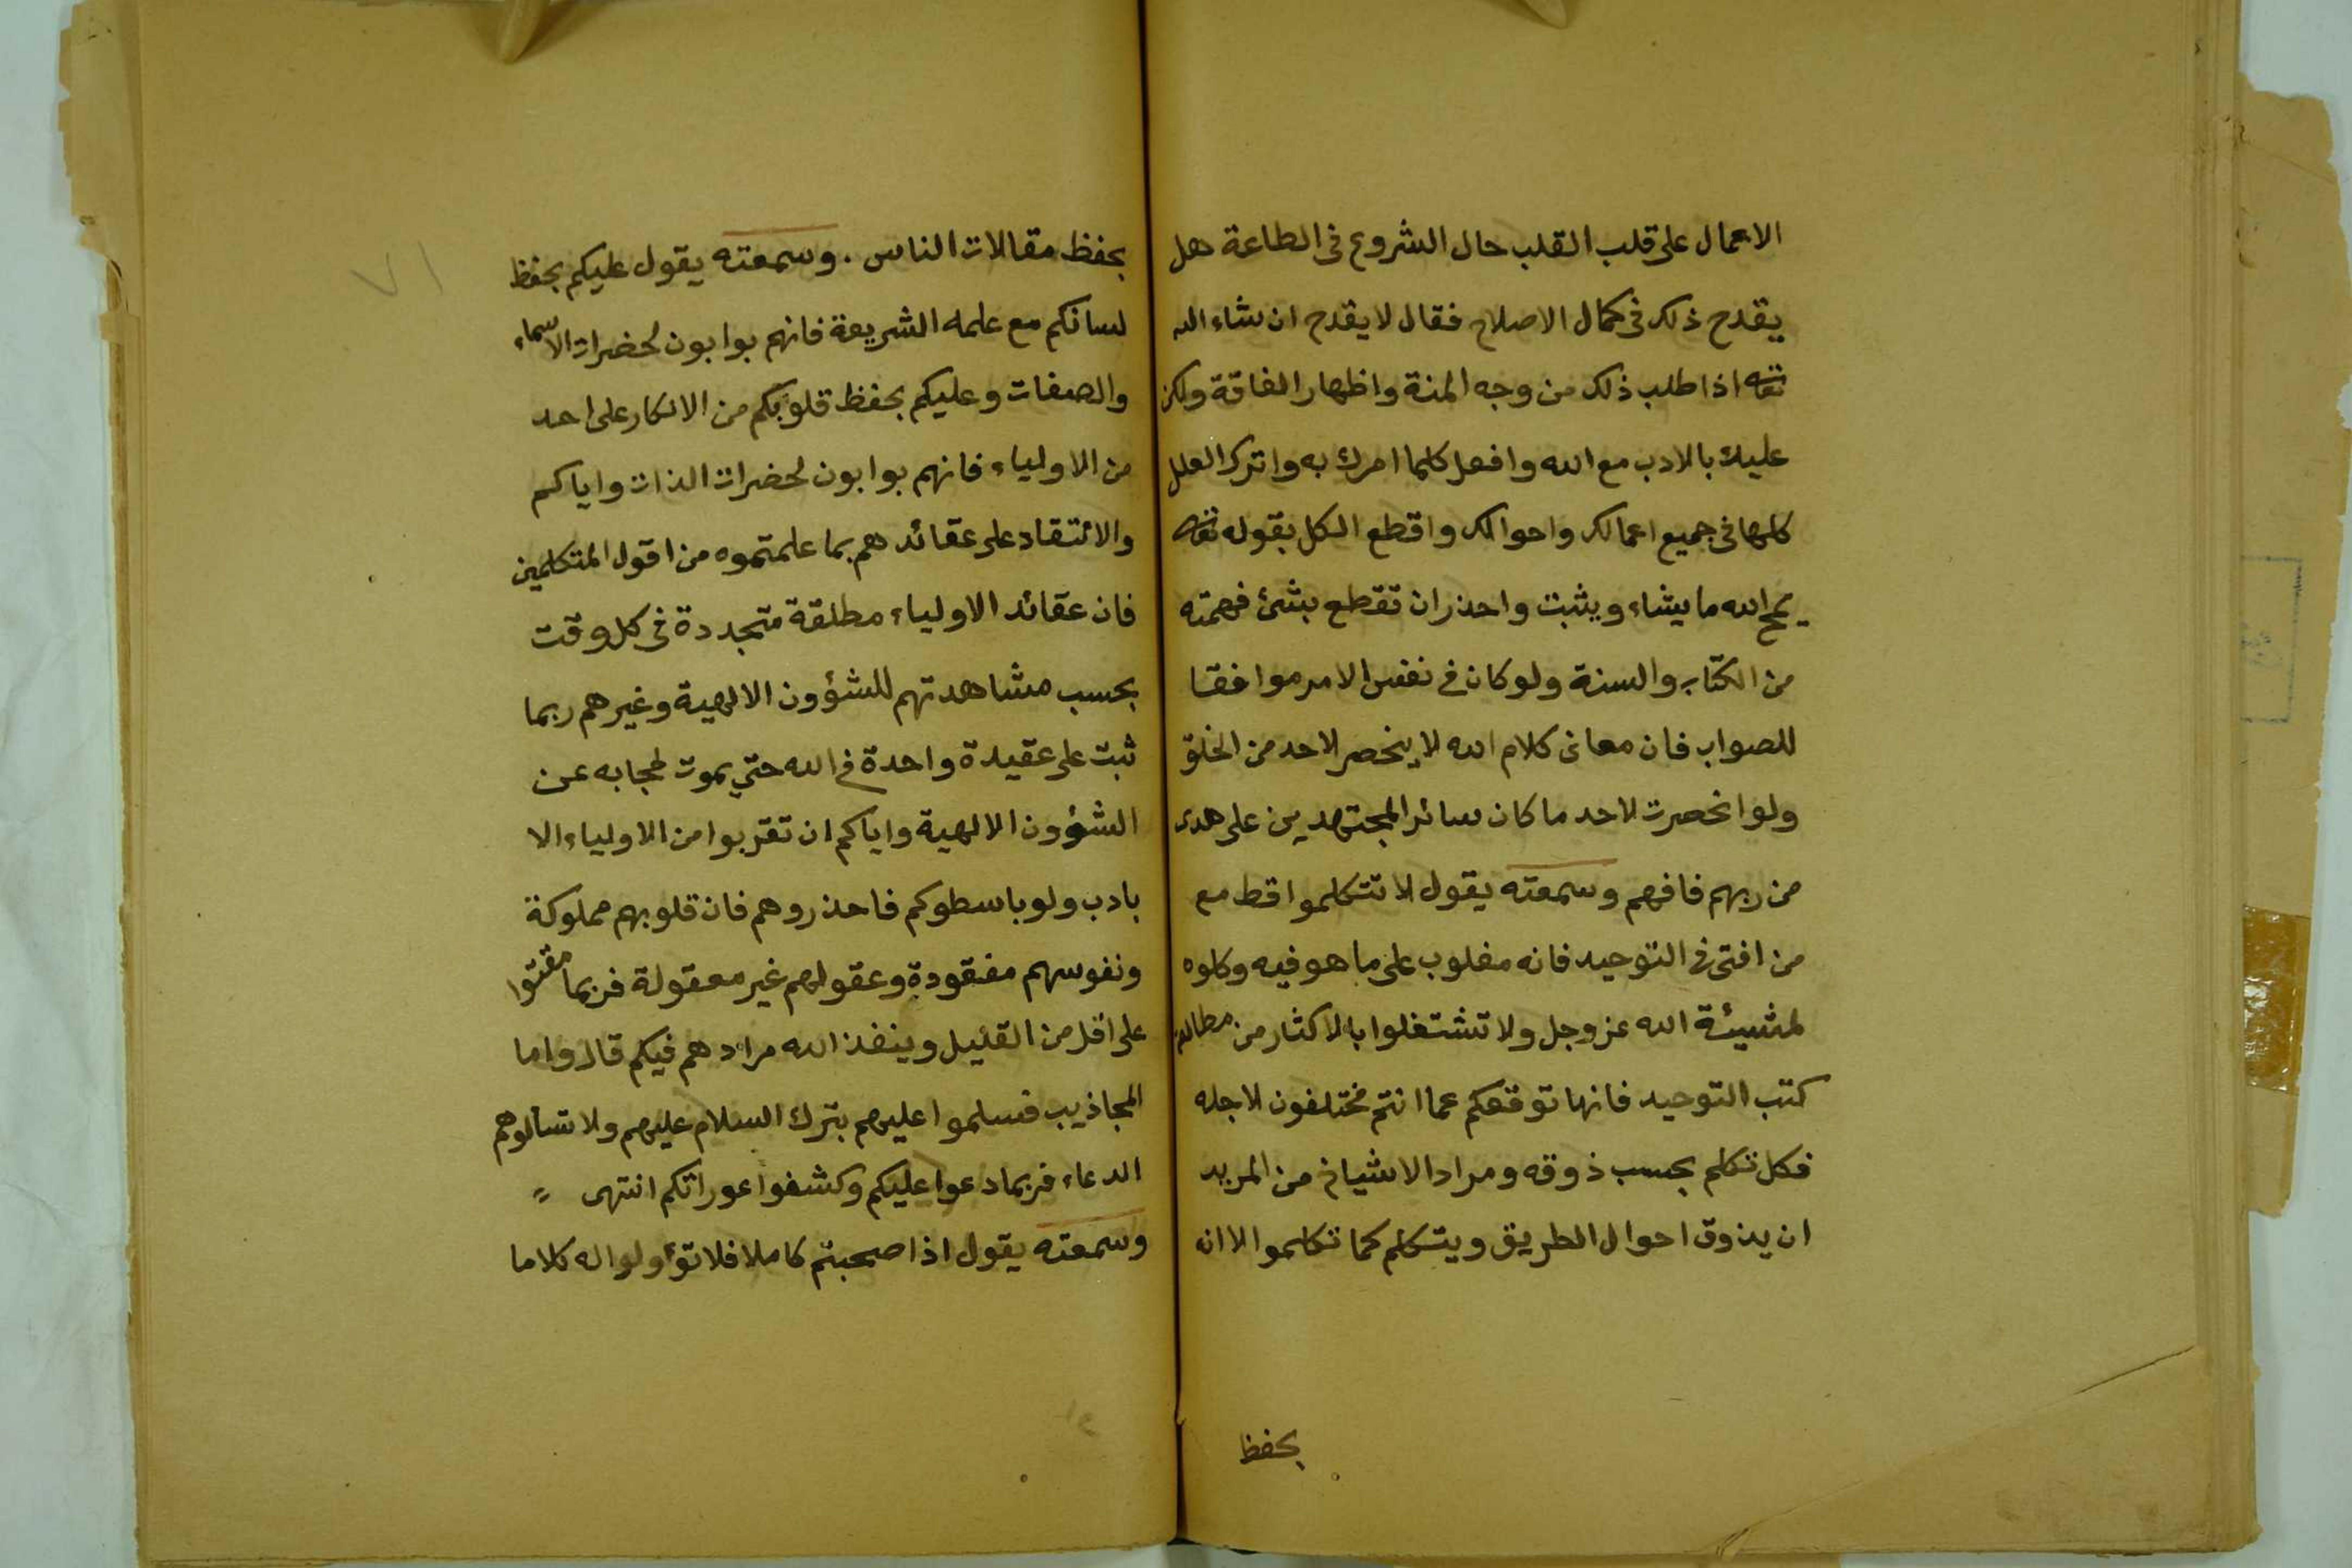 الاعمال على قلب القلب حال الشروع فى الطاعة هل
يقدح ذلك فى كمال الاصلاح فقال لا يقدح ان شاء الله
تعالى اذا طلب ذلك من وجه المنة واظهار الفاقة ولكن
عليك بالادب مع الله وافعل كلما امرك به واترك العلل
كلها فى جميع اعمالك واحوالك واقطع الكل بقوله تعالى
يمح الله ما يشاء ويثبت واحذر ان تقطع بشئ فهمته
من الكتاب والسنة ولو كان فى نفس الامر موافقا
للصواب فان معانى كلام الله لا ينحصر لاحد من الخلق
ولو انحصرت لاحد ما كان سائر المجتهدين على هدى
من ربهم فافهم وسمعته يقول لا تتكلموا قط مع
من افتى فى التوحيد فانه مغلوب على ما هو فيه وكلوه
لمشيئة الله عز وجل ولا تشتغلوا بالاكثار من مطالعة
كتب التوحيد فانها توقفكم عما انتم مختلفون لاجله
فكل تكلم بحسب ذوقه ومراد الاشياخ من المريد
ان يذوق احوال الطريق ويتكلم كما تكلموا لا انه
بحفظ
٧١
بحفظ مقالات الناس . وسمعته يقول عليكم بحفظ
لسانكم مع علماء الشريعة فانهم بوابون لحضرات الاسماء
والصفات وعليكم بحفظ قلوبكم من الانكار على احد
من الاولياء فانهم بوابون لحضرات الذات واياكم
والانتقاد على عقائدهم بما علمتموه من اقول المتكلمين
فان عقائد الاولياء مطلقة متجددة فى كل وقت
بحسب مشاهدتهم للشؤون الالهية وغيرهم ربما
ثبت على عقيدة واحدة فى الله حتى يموت لحجابه عن
الشؤون الالهية واياكم ان تقربوا من الاولياء الا
بادب ولو باسطوكم فاحذروهم فان قلوبهم مملوكة
ونفوسهم مفقودة وعقولهم غير معقولة فربما مقتوا
على اقل من القليل وينفذ الله مرادهم فيكم قال واما
المجاذيب فسلموا عليهم بترك السلام عليهم ولا تسألوهم
الدعاء فربما دعوا عليكم وكشفوا عوراتكم انتهى
وسمعته يقول اذا صحبتم كاملا فلا تؤولوا له كلاما